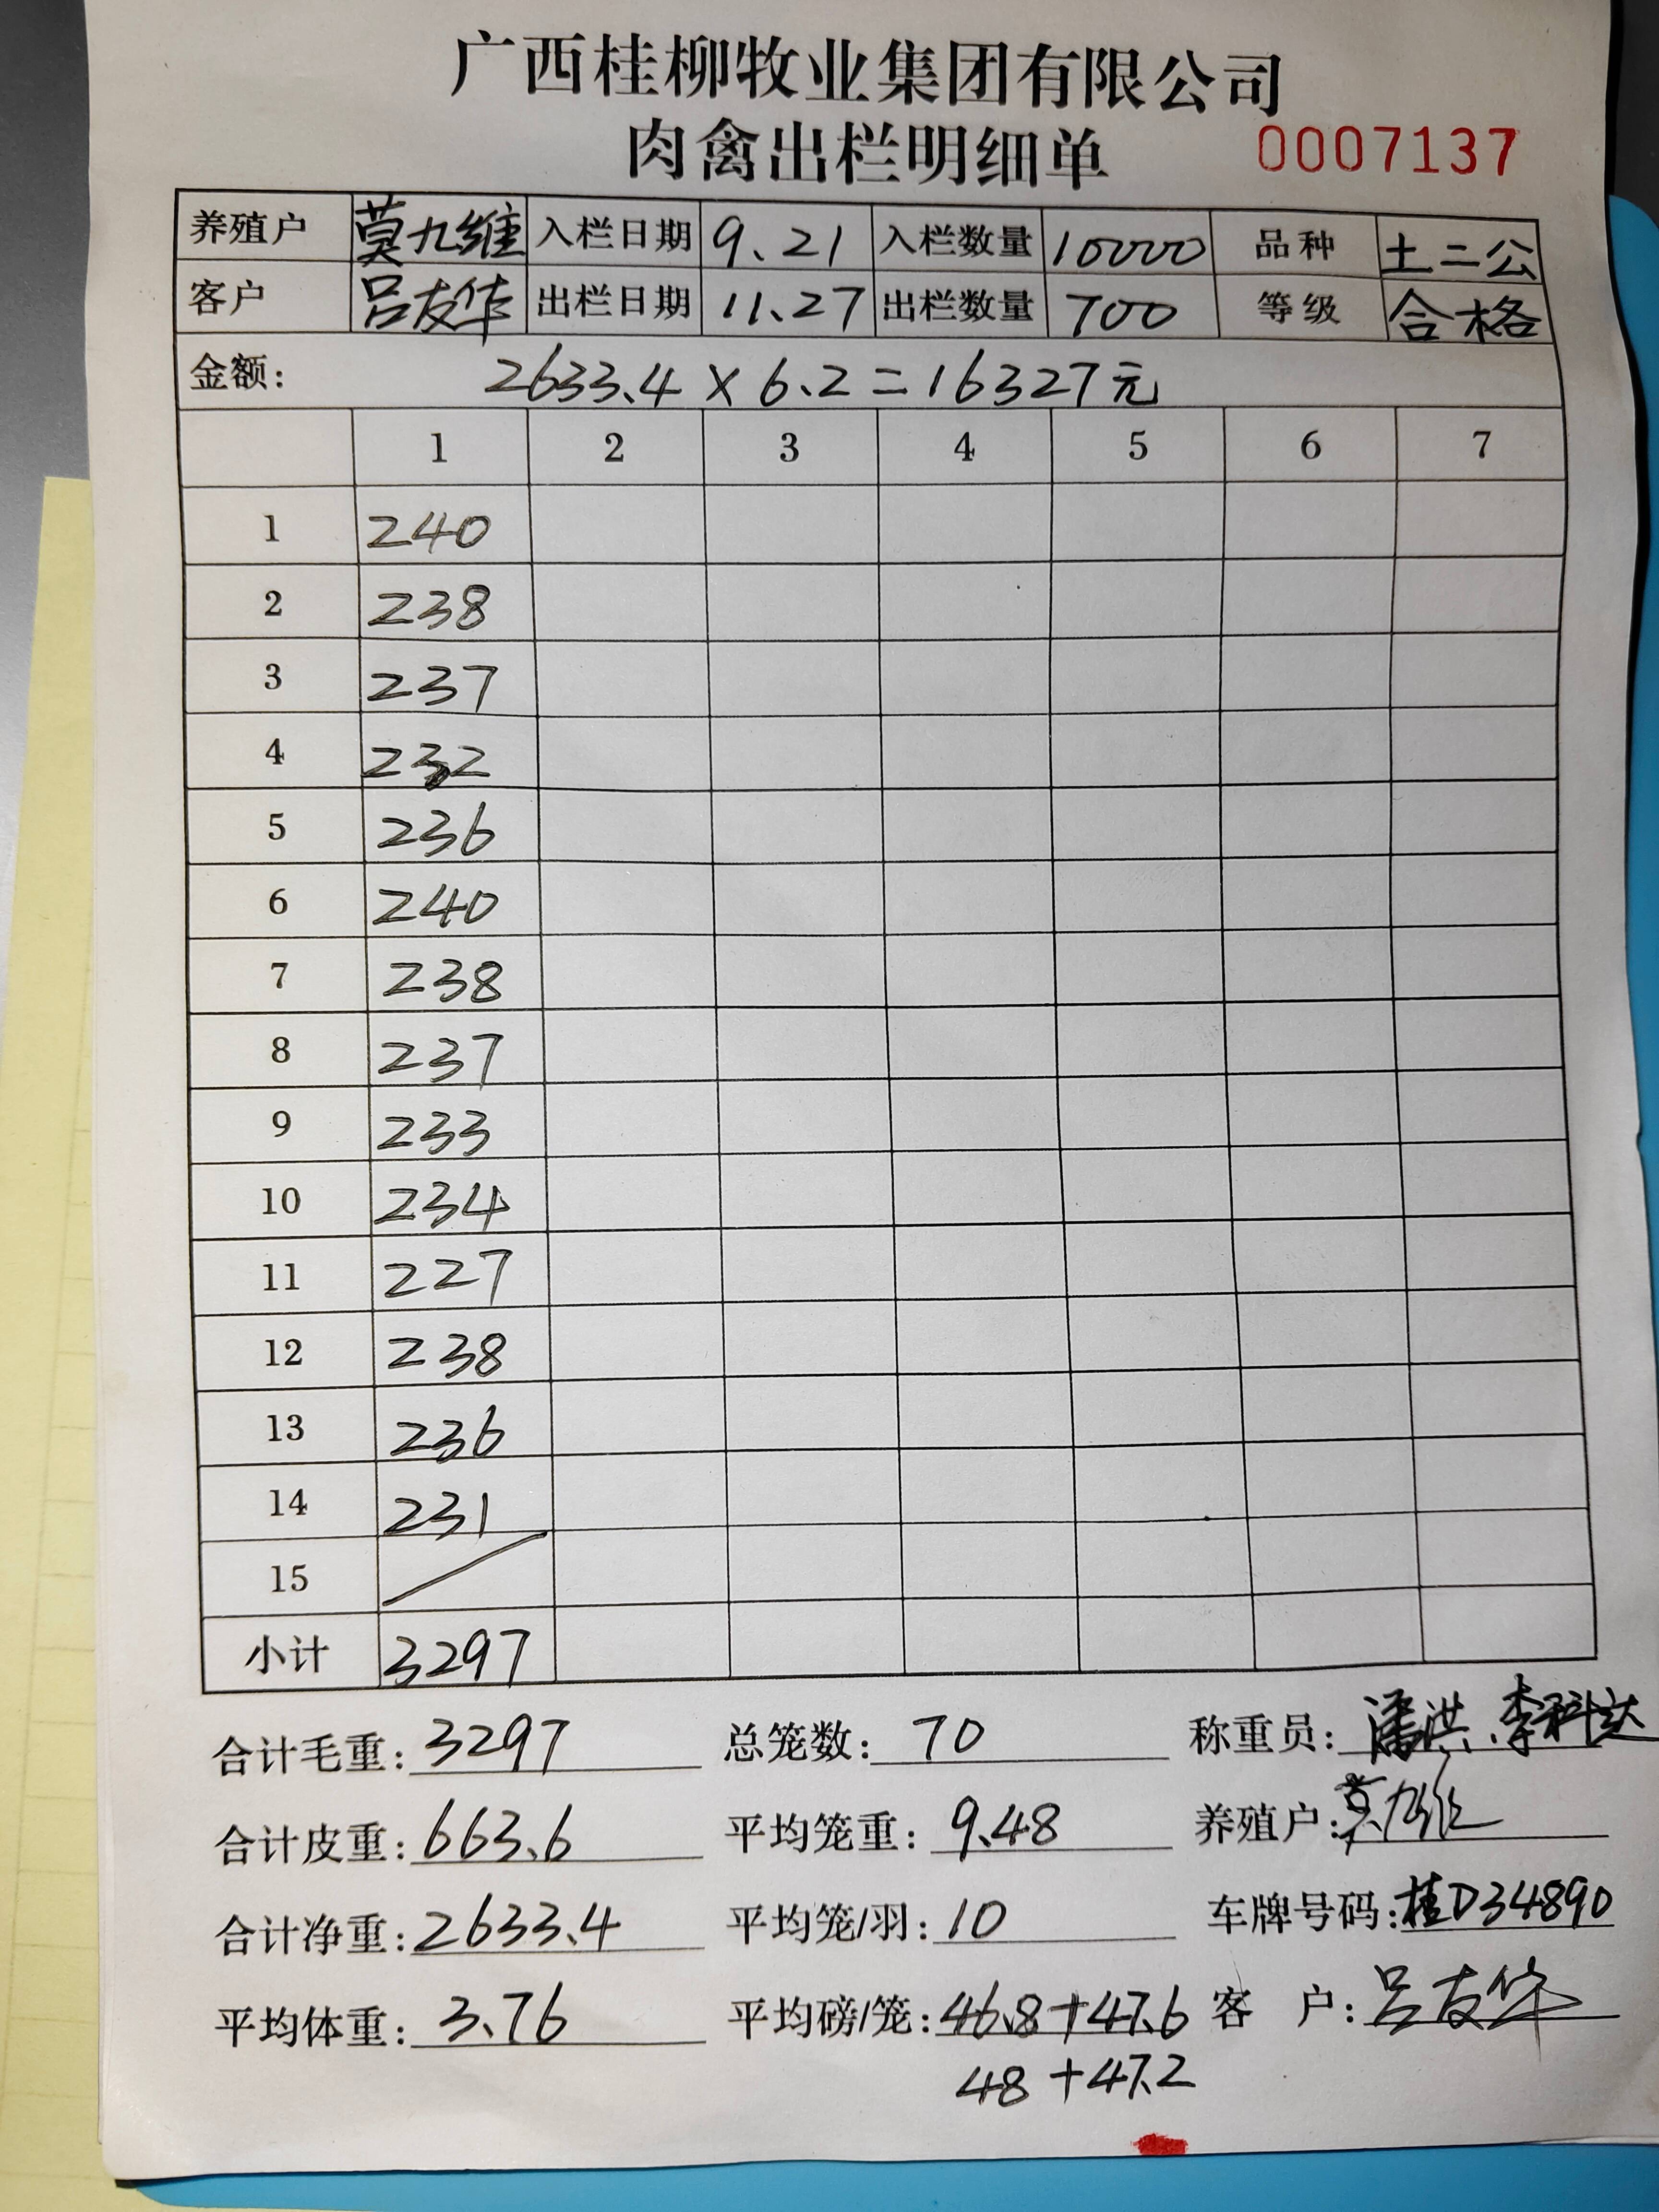 广西桂柳牧业集团有限公司
肉禽出栏明细单 0007137
养殖户 莫九维 入栏日期 9.21 入栏数量 10000 品种 土二公
客户 吕友华 出栏日期 11.27 出栏数量 700 等级 合格
金额: 2633.4 × 6.2 = 16327元
1 2 3 4 5 6 7
1 240
2 238
3 237
4 232
5 236
6 240
7 238
8 237
9 233
10 234
11 227
12 238
13 236
14 231
15
小计 3297
合计毛重: 3297 总笼数: 70 称重员: 潘洪、李科达
合计皮重: 663.6 平均笼重: 9.48 养殖户: 莫九维
合计净重: 2633.4 平均笼/羽: 10 车牌号码: 桂D34890
平均体重: 3.76 平均磅/笼: 46.8+47.6 客 户: 吕友华
48+47.2